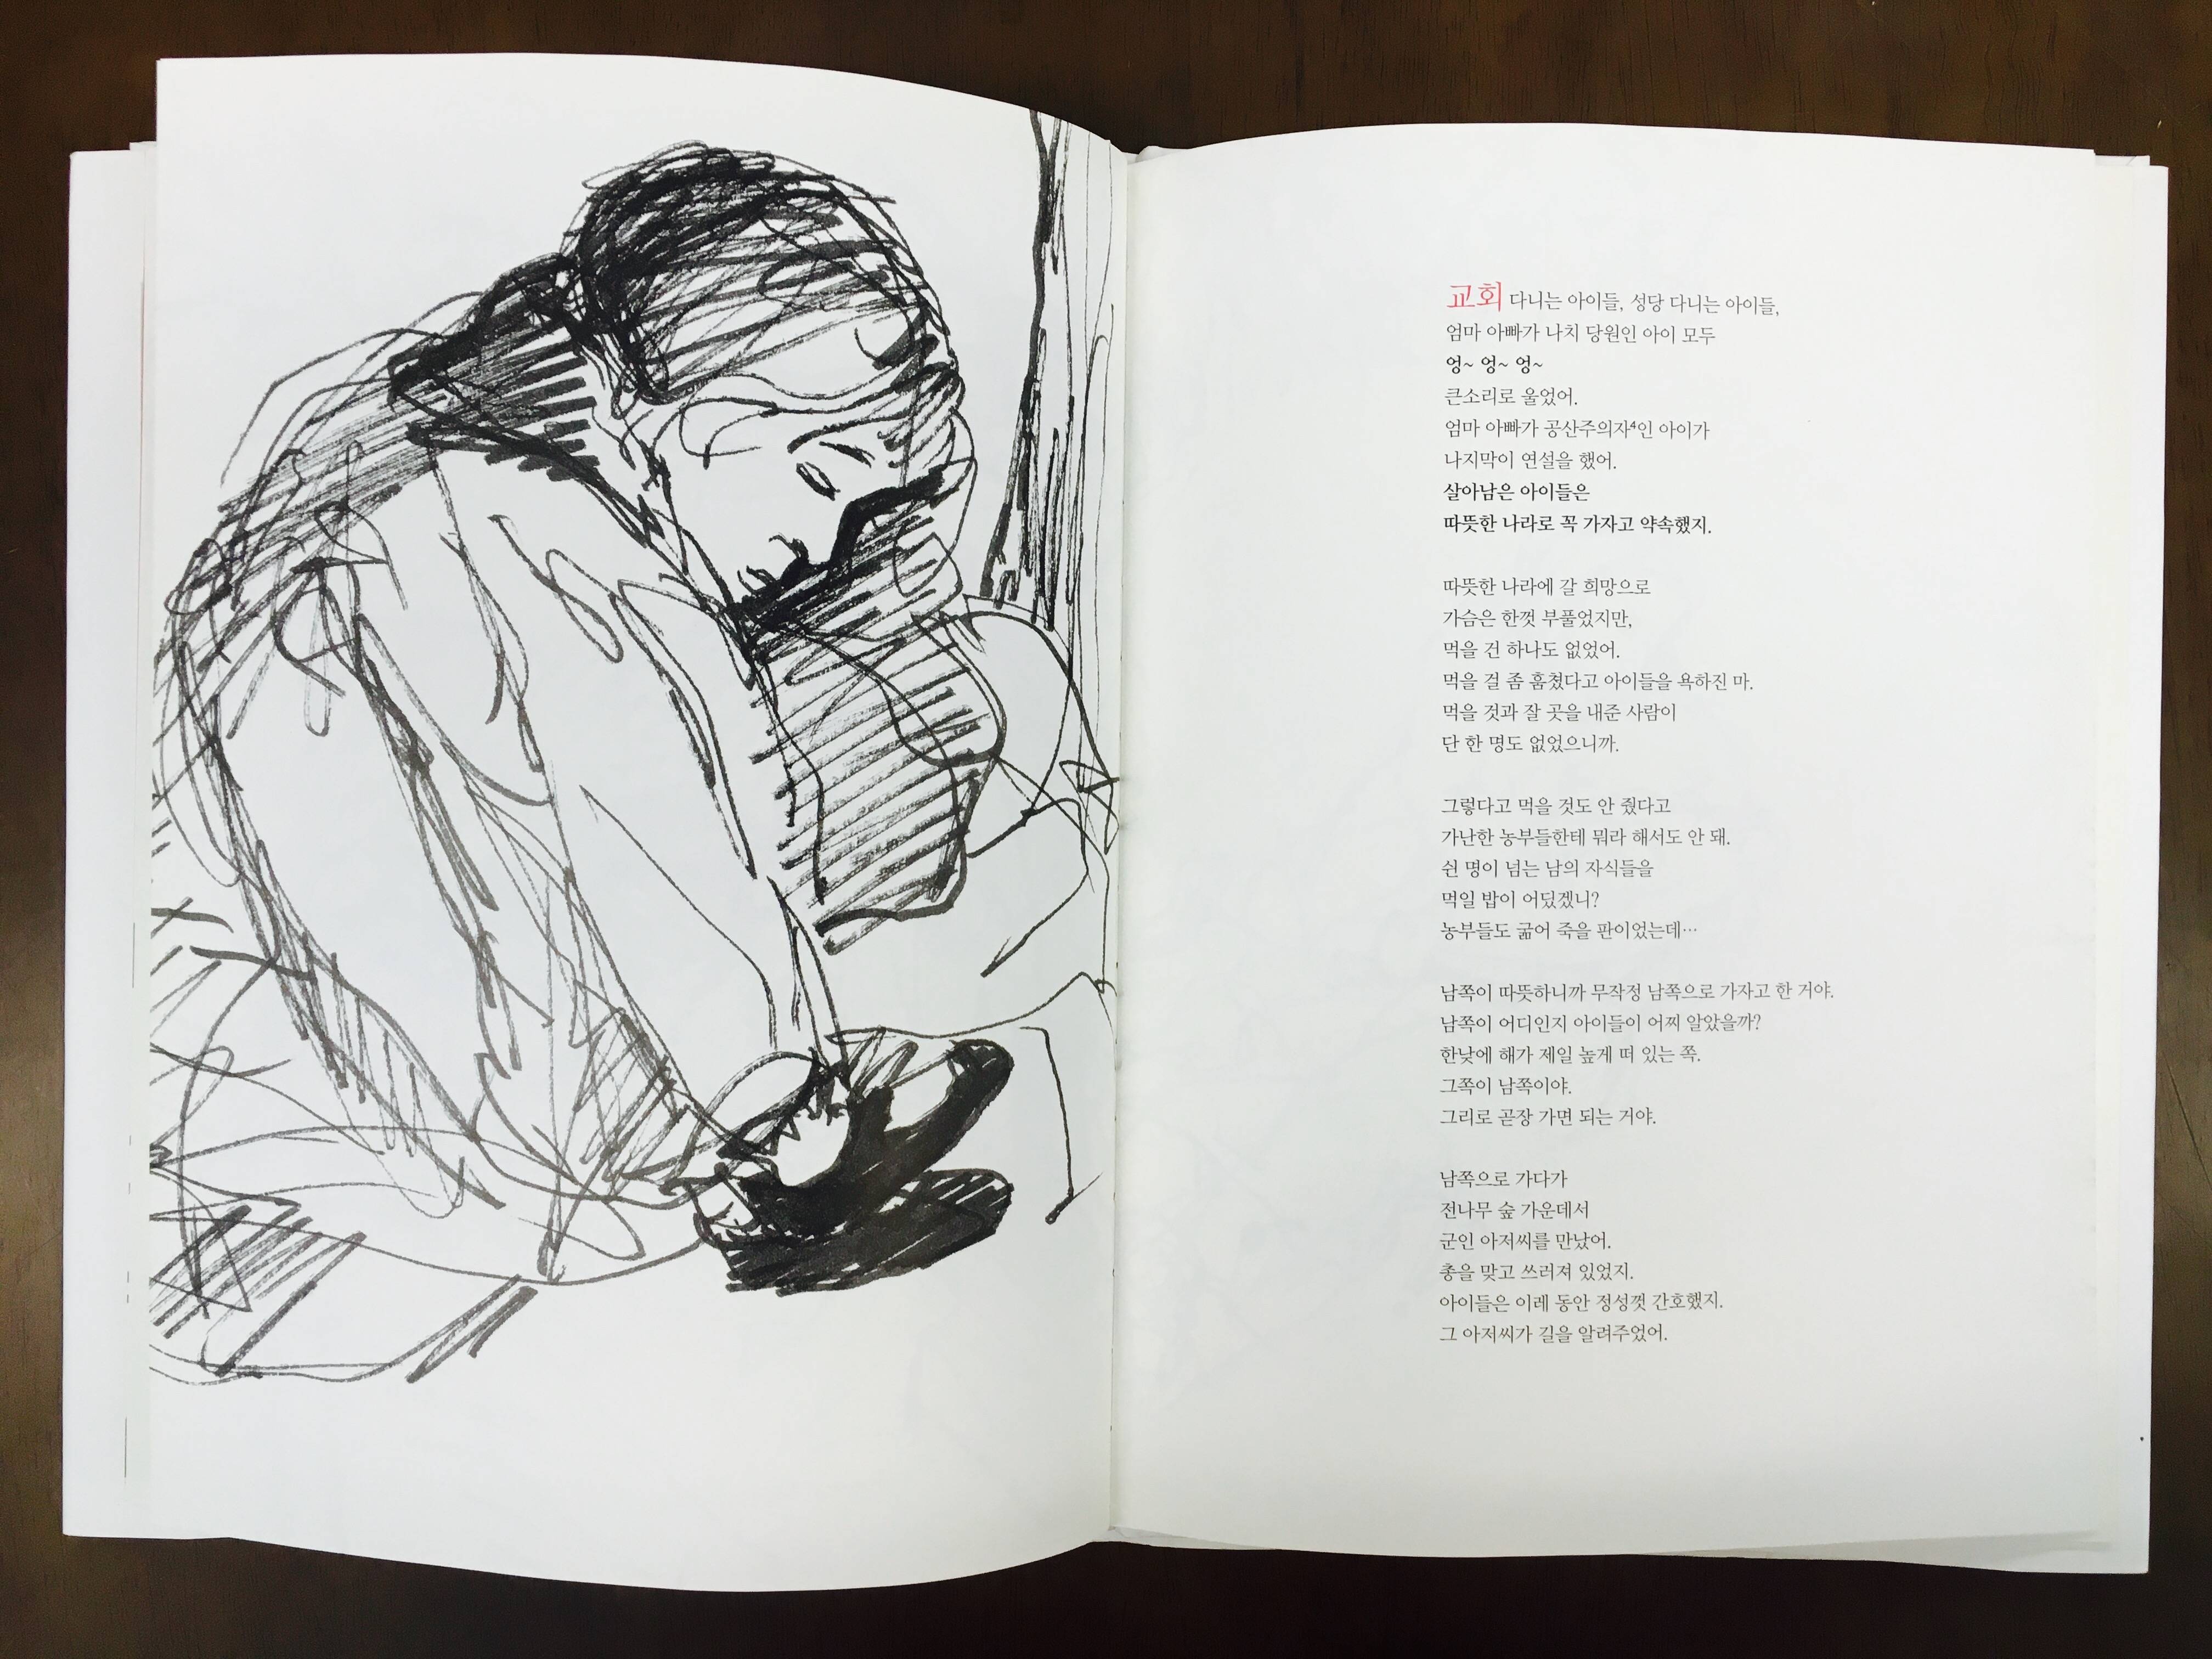 교회 다니는 아이들, 성당 다니는 아이들,
엄마 아빠가 나치 당원인 아이 모두
엉~ 엉~ 엉~
큰소리로 울었어.
엄마 아빠가 공산주의자⁴인 아이가
나지막이 연설을 했어.
살아남은 아이들은
따뜻한 나라로 꼭 가자고 약속했지.
따뜻한 나라에 갈 희망으로
가슴은 한껏 부풀었지만,
먹을 건 하나도 없었어.
먹을 걸 좀 훔쳤다고 아이들을 욕하진 마.
먹을 것과 잘 곳을 내준 사람이
단 한 명도 없었으니까.
그렇다고 먹을 것도 안 줬다고
가난한 농부들한테 뭐라 해서도 안 돼.
쉰 명이 넘는 남의 자식들을
먹일 밥이 어딨겠니?
농부들도 굶어 죽을 판이었는데…
남쪽이 따뜻하니까 무작정 남쪽으로 가자고 한 거야.
남쪽이 어디인지 아이들이 어찌 알았을까?
한낮에 해가 제일 높게 떠 있는 쪽.
그쪽이 남쪽이야.
그리로 곧장 가면 되는 거야.
남쪽으로 가다가
전나무 숲 가운데서
군인 아저씨를 만났어.
총을 맞고 쓰러져 있었지.
아이들은 이레 동안 정성껏 간호했지.
그 아저씨가 길을 알려주었어.